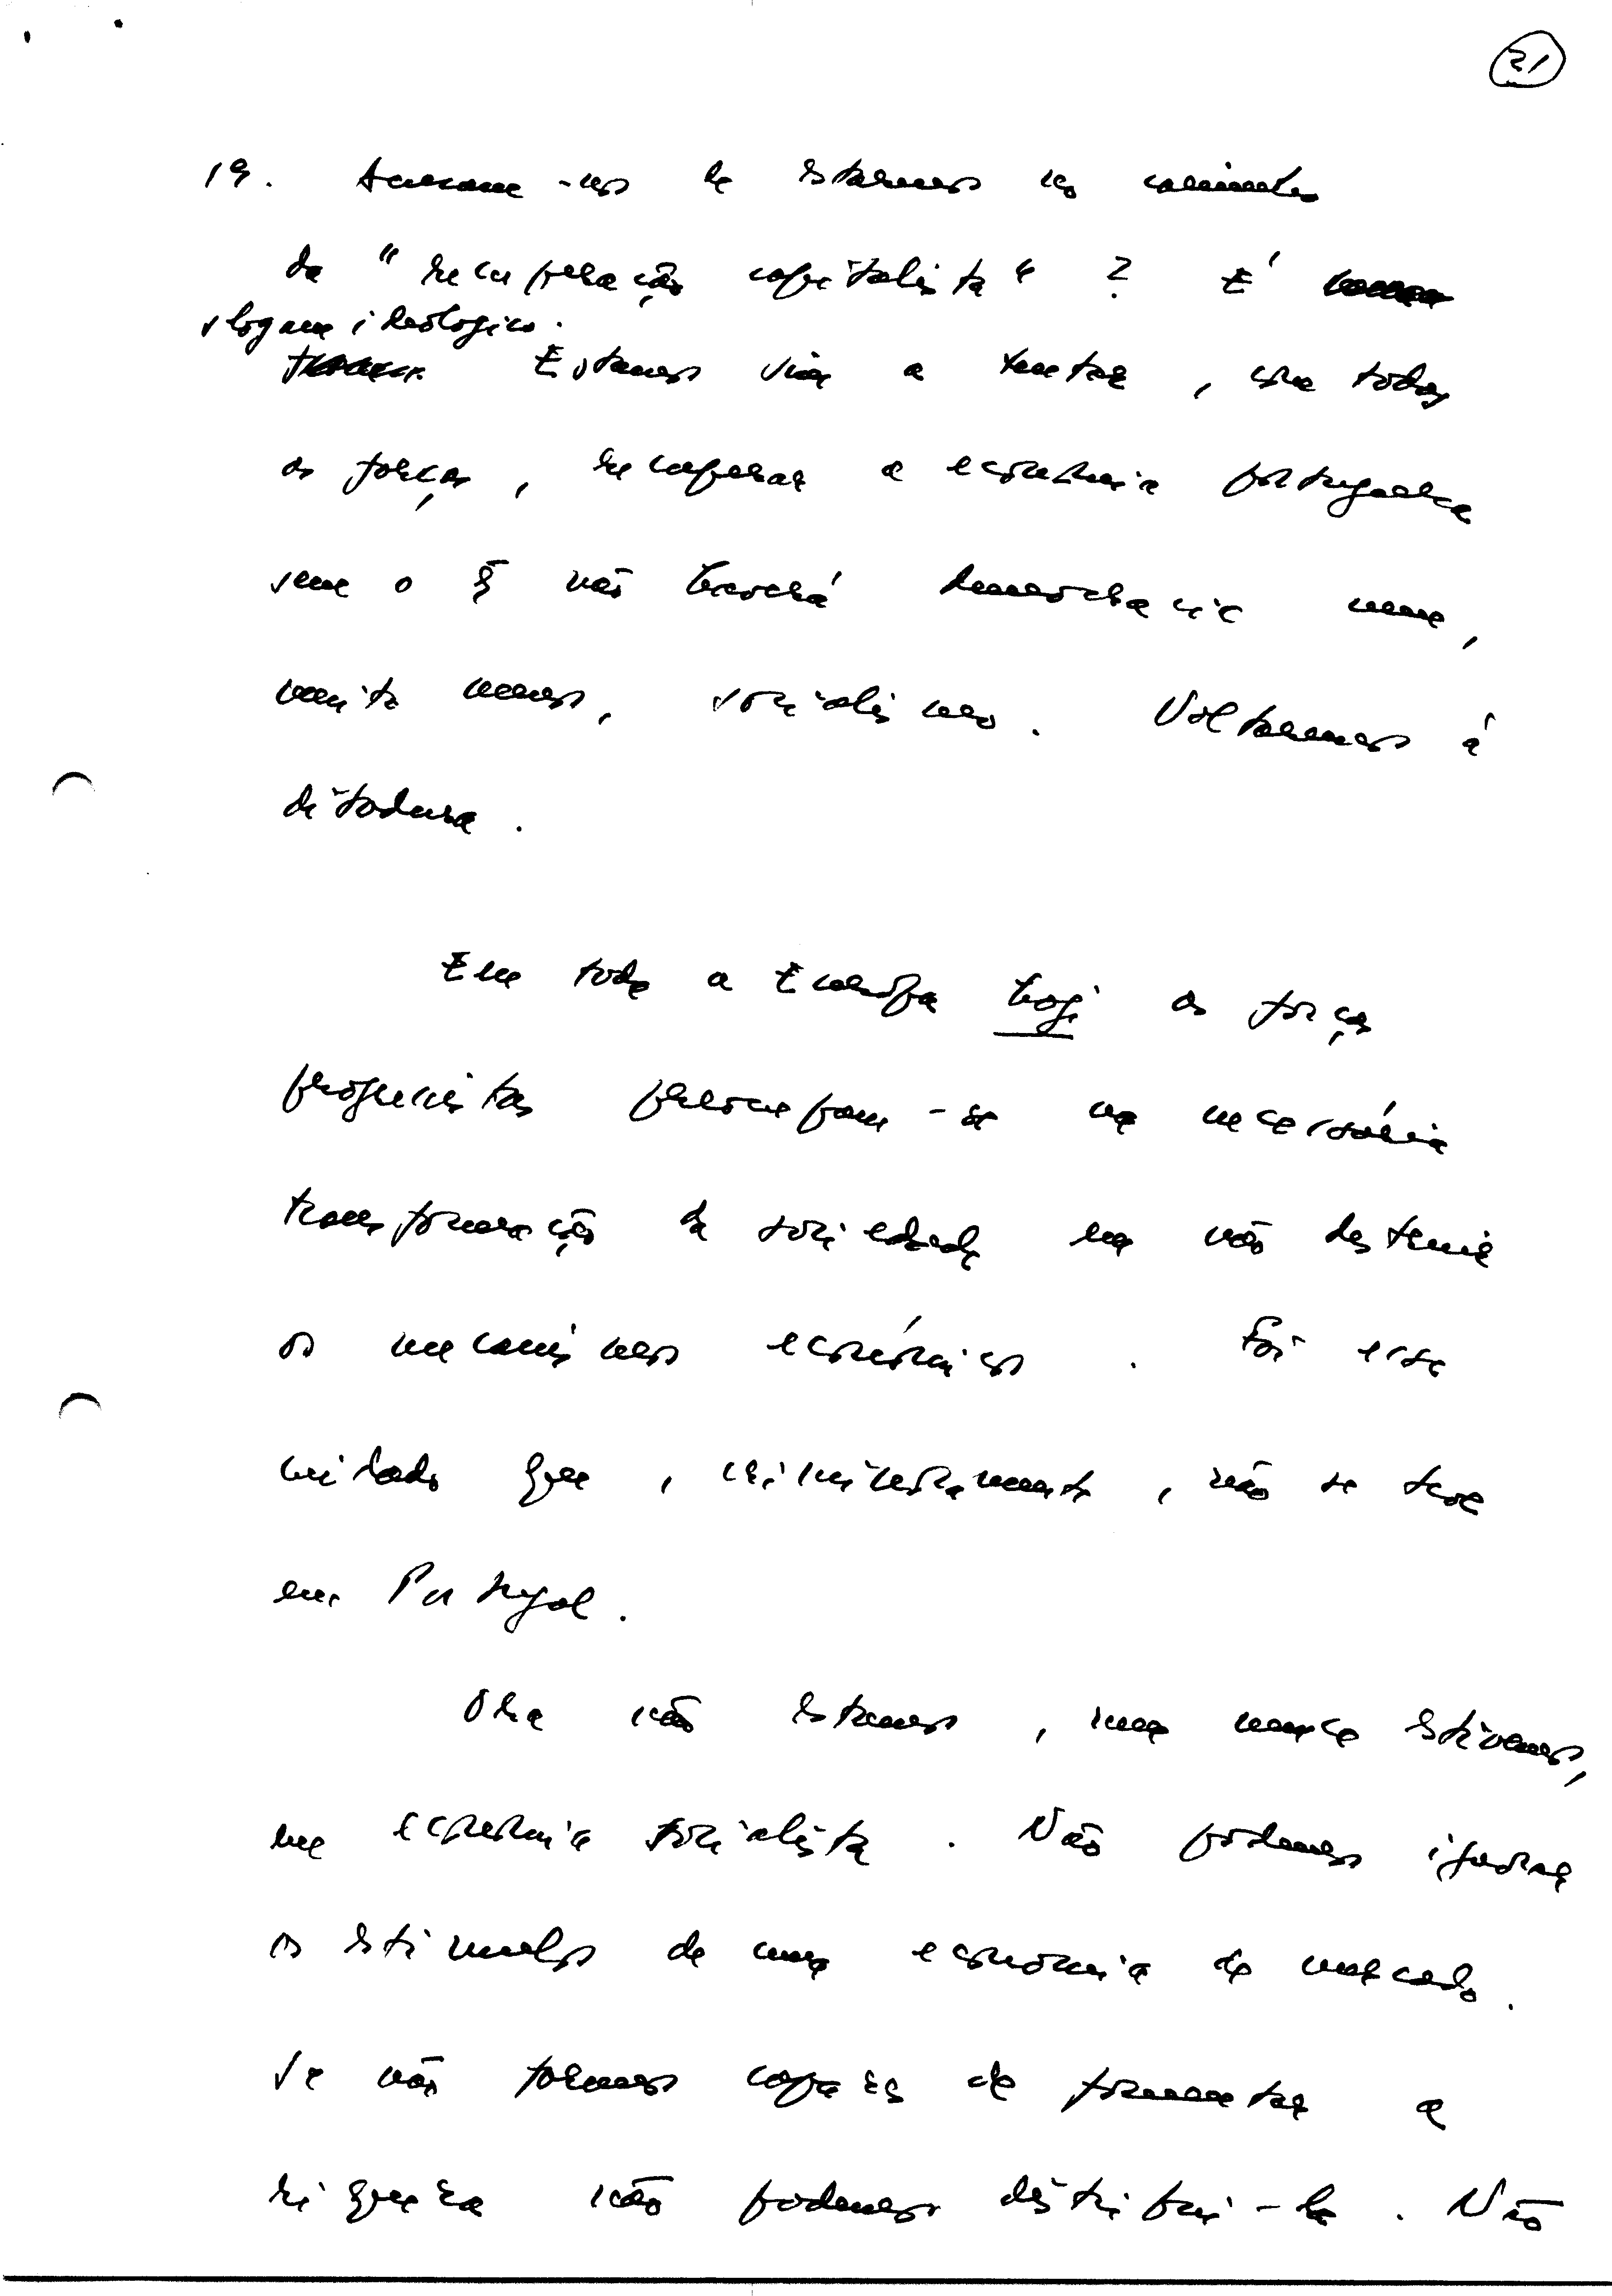 21
19. Acusam-nos de estarmos no caminho
da "recuperação capitalista"? É
slogan ideológico.
Estamos sim a tentar, com todas
as forças, recuperar a economia portuguesa
sem o q̃ não haverá democracia nem,
muito menos, socialismo. Voltaremos à
ditadura.
Em toda a Europa hoje as forças
progressistas preocupam-se na necessária
transformação da sociedade em não destruir
os mecanismos económicos. Foi esse
cuidado que, criminosamente, não se teve
em Portugal.
Ora não estamos, nem nunca estivemos,
em economia socialista. Não podemos ignorar
os estímulos de uma economia de mercado.
Se não formos capazes de fomentar a
riqueza não podemos distribui-la. Não